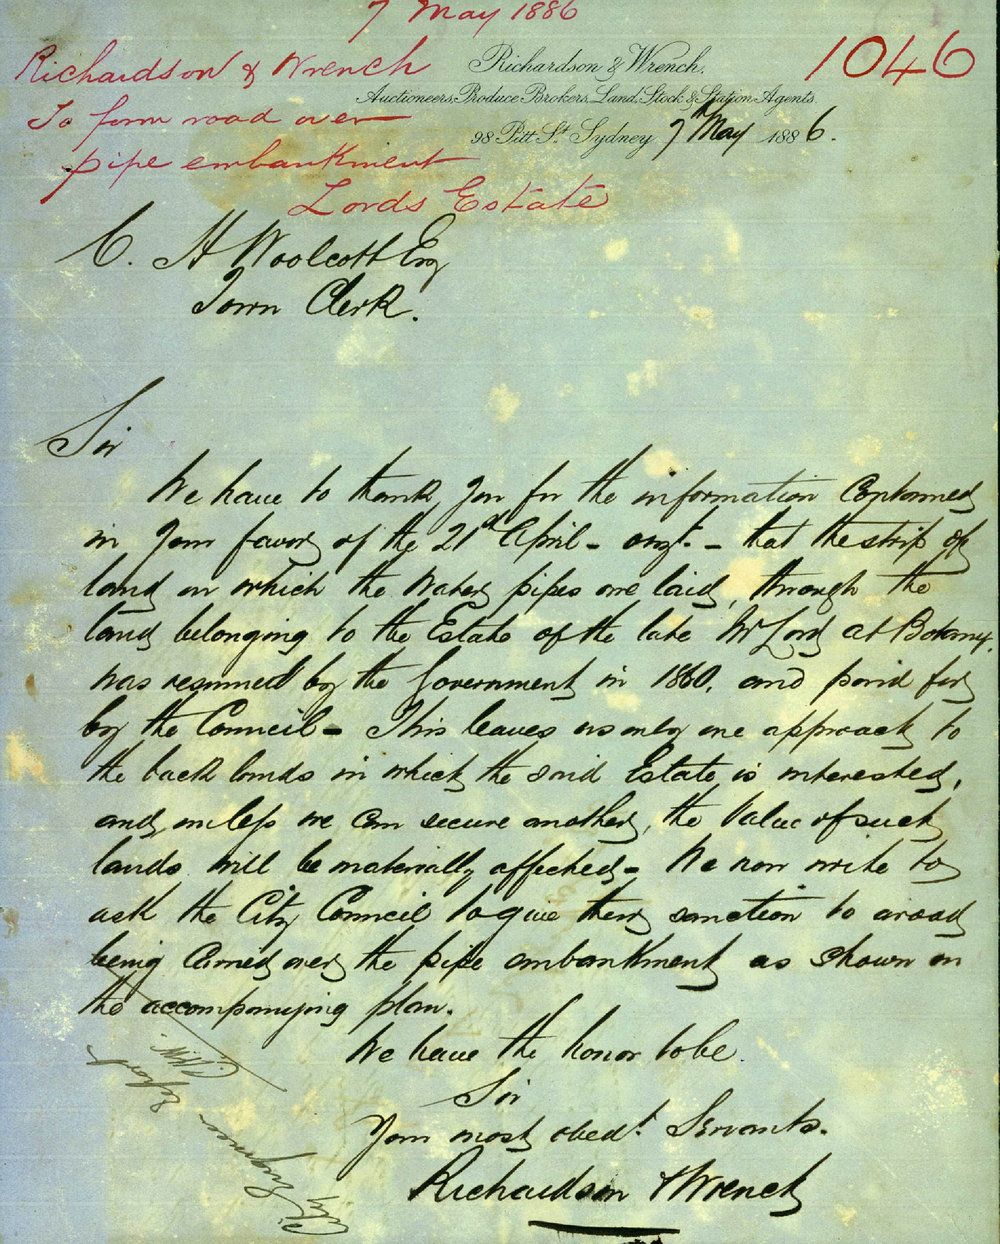 7 May 1886
1046
Richardson & Wrench
To form road over
pipe embankment
Lords Estate
Richardson & Wrench.
Auctioneers, Produce Brokers, Land, Stock & Station Agents.
98 Pitt St. Sydney 7th May 1886.
C. H Woolcott Esq
Town Clerk.
Sir
We have to thank you for the information contained
in your favor of the 21st April - that the strip of
land on which the water pipes are laid, through the
land belonging to the Estate of the late Mr Lord at Botany,
was resumed by the Government in 1860, and paid for
by the Council - This leaves us only one approach to
the back lands in which the said Estate is interested,
and, unless we can secure another, the value of such
lands will be materially affected - We now write to
ask the City Council to give their sanction to a road
being carried over the pipe embankment as shown on
the accompanying plan.
We have the honor to be.
Sir
Your most obedt. Servants.
Richardson & Wrench
City Engineer
Report
C.H.W.